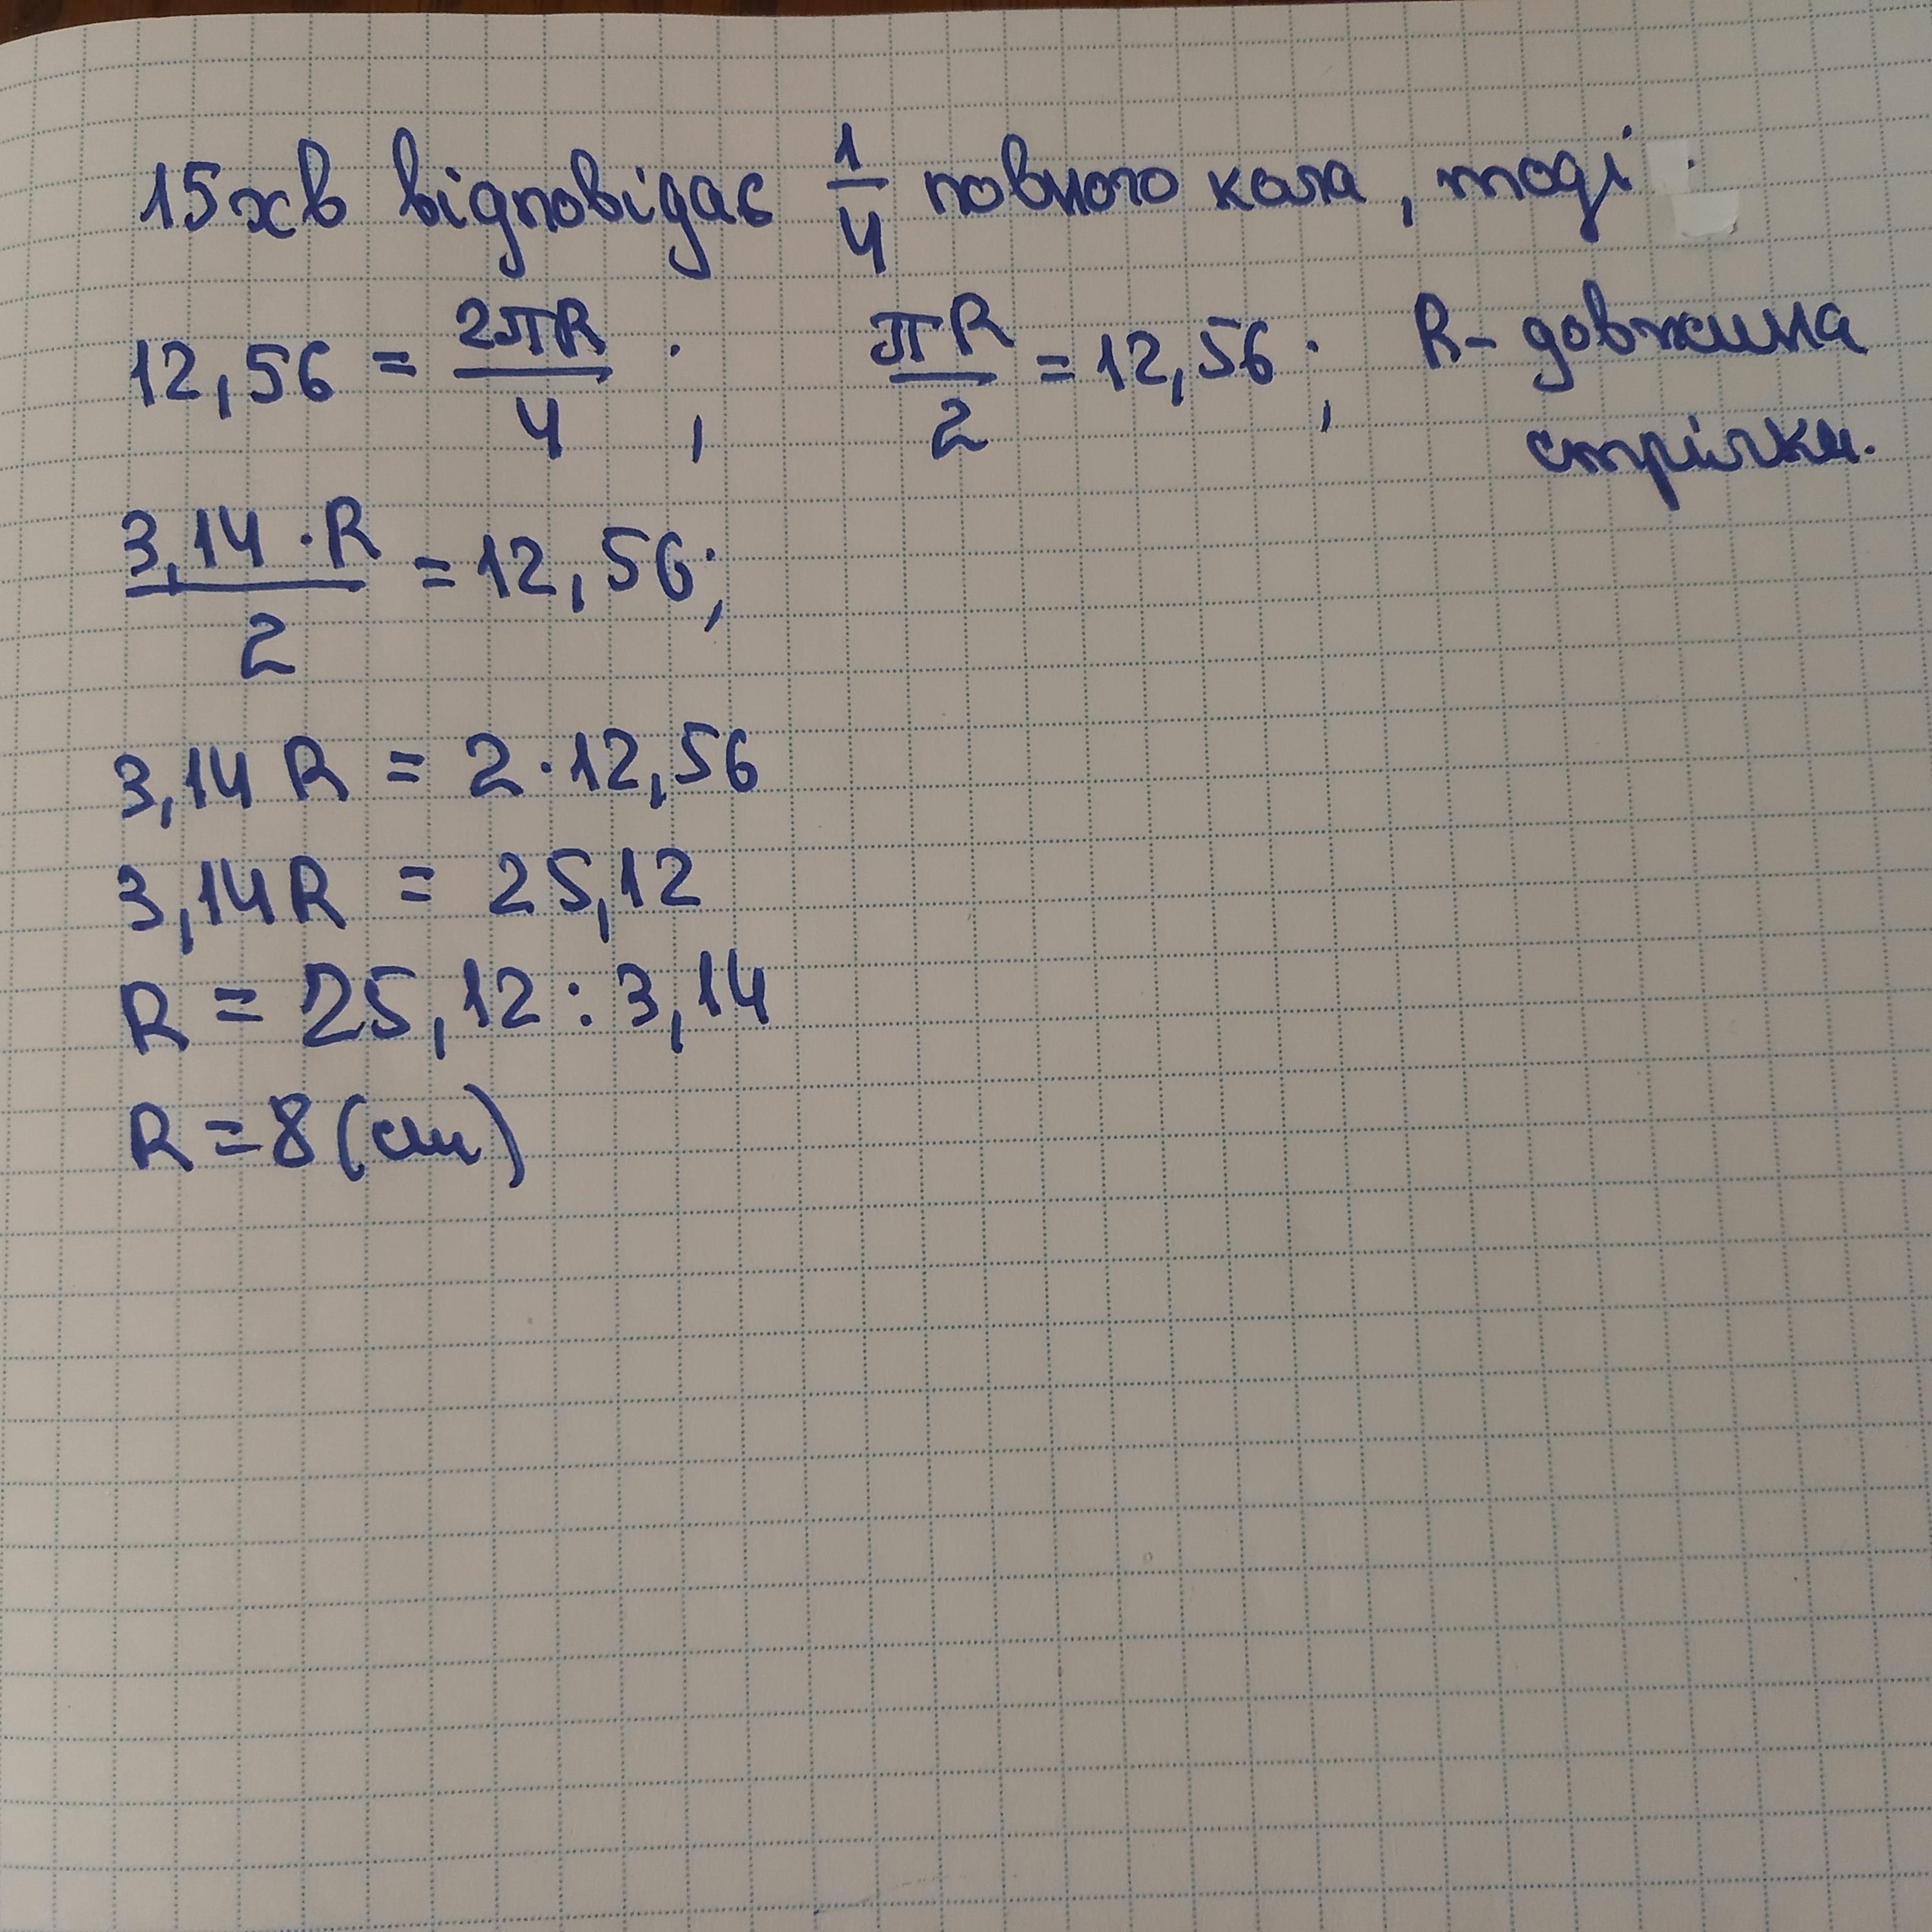 15хв відповідає 1/4 повного кола, тоді
12,56 = 2πR/4 ; πR/2 = 12,56; R - довжина
стрілки.
3,14 · R/2 = 12,56;
3,14 R = 2·12,56
3,14R = 25,12
R = 25,12 : 3,14
R = 8 (см)